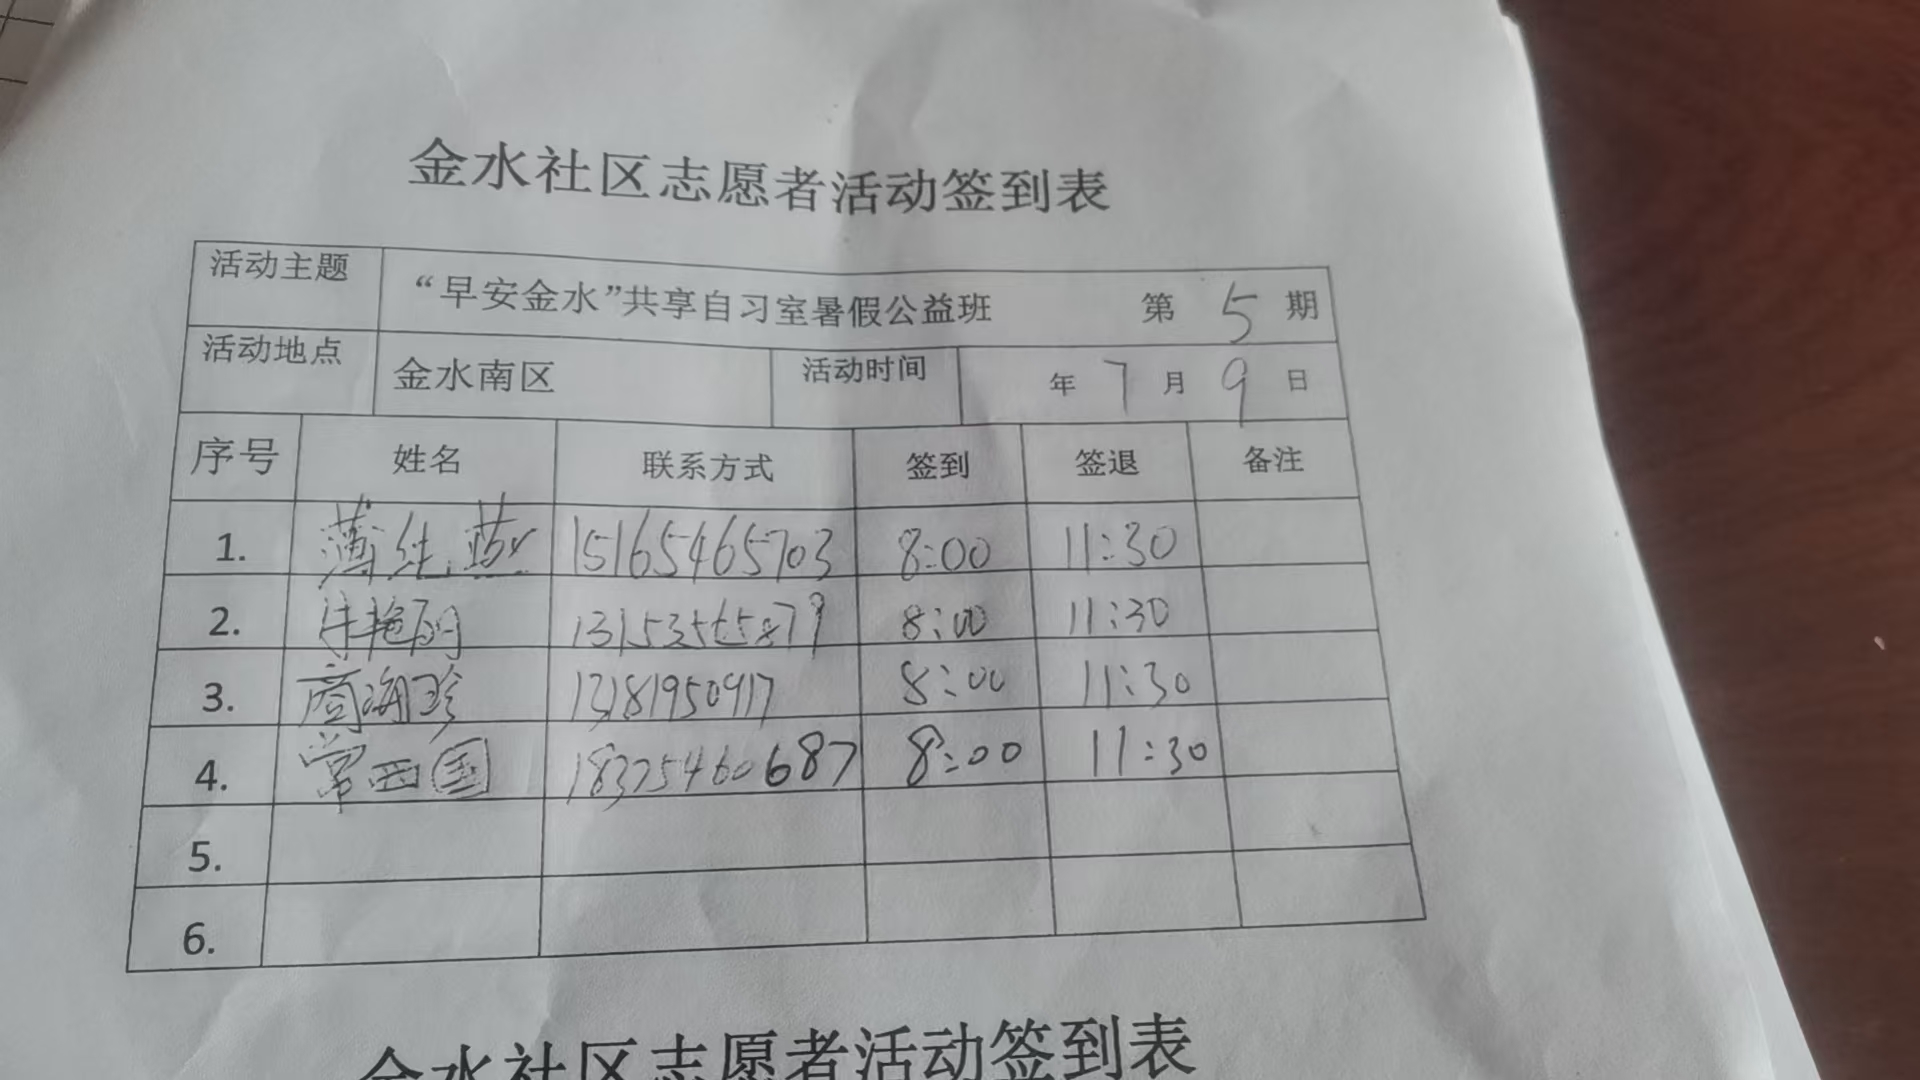 金水社区志愿者活动签到表
活动主题 “早安金水”共享自习室暑假公益班 第 5 期
活动地点 金水南区 活动时间 年 7 月 9 日
序号 姓名 联系方式 签到 签退 备注
1. 薄纯燕 15165465703 8:00 11:30
2. 8:00 11:30
3. 商海珍 13181950917 8:00 11:30
4. 常西国 18375460687 8:00 11:30
5.
6.
金水社区志愿者活动签到表